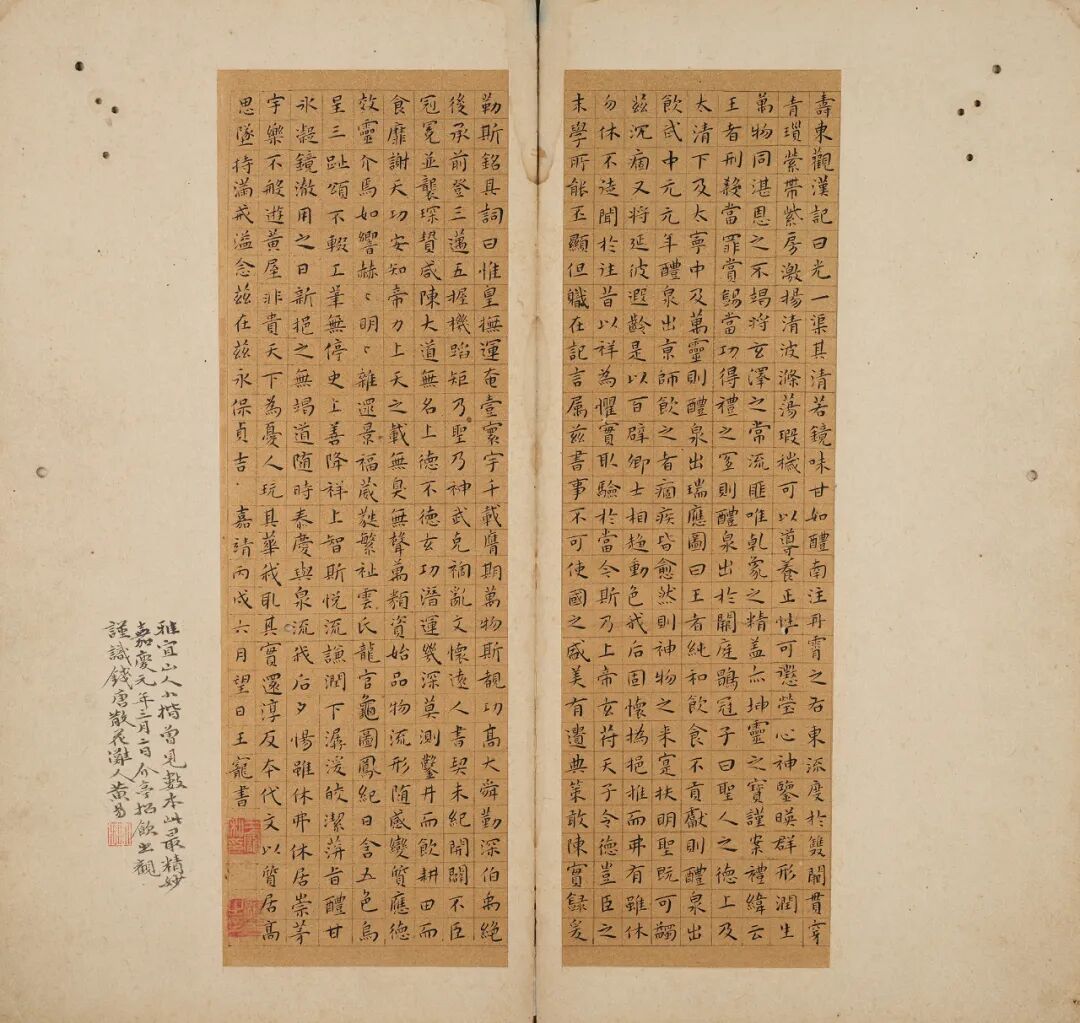 壽東觀漢記曰光一渠其清若鏡味甘如醴南注丹霄之右東流度於雙闕貫穿
青瑣縈帶紫房激揚清波滌蕩瑕穢可以導養正性可懲瑩心神鑒暎群形潤生
萬物同湛恩之不竭將玄澤之常流匪唯乹象之精盖亦坤靈之寶謹案禮緯云
王者刑殺當罪賞錫當功得禮之宜則醴泉出於闕庭鶡冠子曰聖人之德上及
太清下及太寧中及萬靈則醴泉出瑞應圖曰王者純和飲食不貢獻則醴泉出
飲式中元元年醴泉出京師飲之者痼疾皆愈然則神物之来寔扶明聖既可蠲
兹沉痼又將延彼遐齡是以百辟卿士相趍動色我后固懷撝挹推而弗有雖休
勿休不徒聞於往昔以祥為懼實取驗於當今斯乃上帝玄苻天子令德豈臣之
末學所能丕顯但職在記言属兹書事不可使國之盛美有遺典策敢陳實録爰
勒斯銘其詞曰惟皇撫運奄壹寰宇千載膺期萬物斯覩功髙大舜勤深伯禹絶
後承前登三邁五握機蹈矩乃聖乃神武克禍亂文懷遠人書契未紀開闢不臣
冠冕並襲琛贄咸陳大道無名上德不德玄功潛運幾深莫測鑿井而飲耕田而
食靡謝天功安知帝力上天之載無臭無聲萬類資始品物流形随感變質應德
效靈介焉如響赫〻明〻雜遝景福葳蕤繁祉雲氏龍官龜圖鳳紀日含五色烏
呈三趾頌不輟工筆無停史上善降祥上智斯悦流謙潤下潺湲皎潔蓱旨醴甘
氷凝鏡澈用之日新挹之無竭道随時泰慶與泉流我后夕惕雖休弗休居崇茅
宇樂不般遊黄屋非貴天下為憂人玩其華我取其實還淳反本代文以質居髙
思墜持滿戒溢念兹在兹永保貞吉 嘉靖丙戌六月望日王寵書
雅宜山人小楷曾見數本此最精妙
嘉慶元年三月二日介亭招飲出觀
謹識錢唐散花灘人黄易